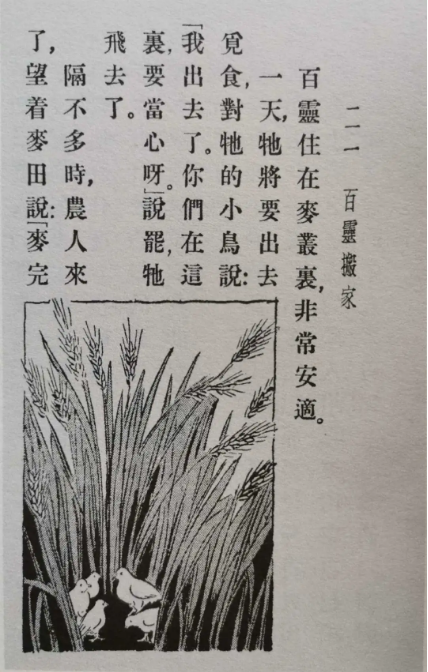 二一 百靈搬家
百靈住在麥叢裏,非常安適。
一天,牠將要出去
覓食,對牠的小鳥說:
「我出去了。你們在這
裏,要當心呀。」說罷,牠
飛去了。
隔不多時,農人來
了,望着麥田說:「麥完